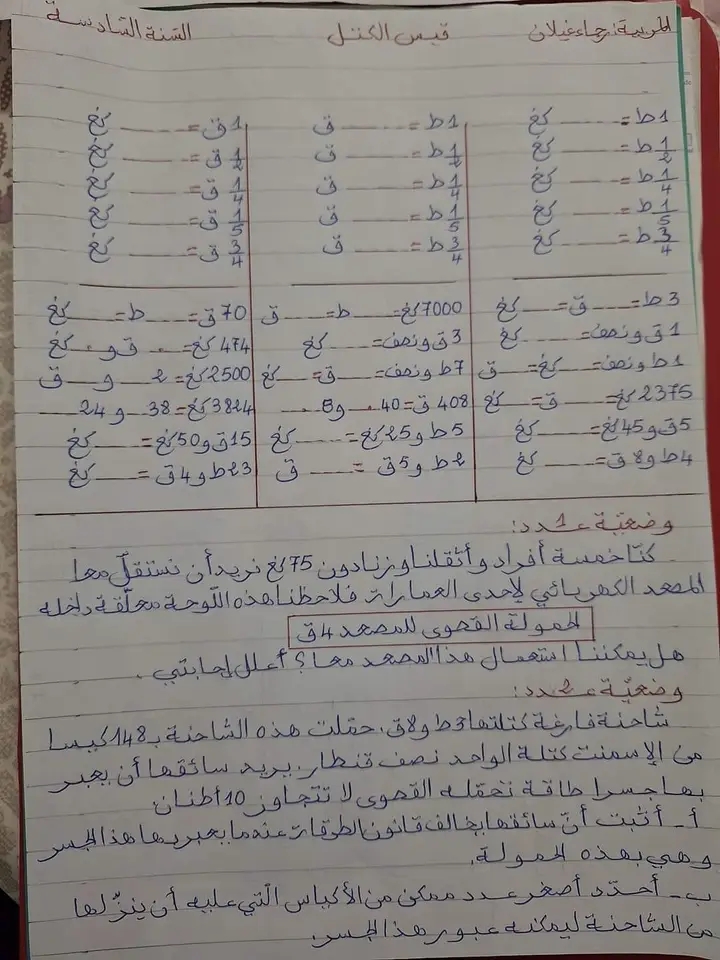 المربية: رجاء غيلان قيس الكتل السنة السادسة
1 ط = ------ كغ
1/2 ط = ------ كغ
1/4 ط = ------ كغ
1/5 ط = ------ كغ
3/4 ط = ------ كغ
1 ط = ------ ق
1/2 ط = ------ ق
1/4 ط = ------ ق
1/5 ط = ------ ق
3/4 ط = ------ ق
1 ق = ------ كغ
1/2 ق = ------ كغ
1/4 ق = ------ كغ
1/5 ق = ------ كغ
3/4 ق = ------ كغ
3 ط = ------ ق = ------ كغ
1 ق ونصف = ------ كغ
1 ط ونصف = ------ كغ = ------ ق
2375 كغ = ------ ق = ------ كغ
5 ق و 45 كغ = ------ كغ
4 ط و 8 ق = ------ كغ
7000 كغ = ------ ط = ------ ق
3 ق ونصف = ------ كغ
7 ط ونصف = ------ ق = ------ كغ
408 ق = 40 ... و 8 ...
5 ط و 25 كغ = ------ كغ
2 ط و 5 ق = ------ ق
70 ق = ------ ط = ------ كغ
474 كغ = ... ق و ... كغ
2500 كغ = 2 ------ و ------ ق
3824 كغ = 38 ------ و 24 ------
15 ق و 50 كغ = ------ كغ
23 ط و 4 ق = ------ كغ
وضعيّة عـ1ـدد:
كنّا خمسة أفراد وأثقلنا وزنا دون 75 كغ نريد أن نستقلّ معا
المصعد الكهربائي لإحدى العمارات فلاحظنا هذه اللّوحة معلّقة داخله
الحمولة القصوى للمصعد 4 ق
هل يمكننا استعمال هذا المصعد معا؟ أعلل إجابتي.
وضعيّة عـ2ـدد:
شاحنة فارغة كتلتها 3 ط و 7 ق، حمّلت هذه الشاحنة بـ 148 كيسا
من الإسمنت كتلة الواحد نصف قنطار. يريد سائقها أن يعبر
بها جسرا طاقة تحمّله القصوى لا تتجاوز 10 أطنان
أ - أثبت أنّ سائقها يخالف قانون الطرقات عندما يعبر بها هذا الجسر
وهي بهذه الحمولة.
ب - أحدّد أصغر عدد ممكن من الأكياس الّتي عليه أن ينزّلها
من الشاحنة ليمكنه عبور هذا الجسر.